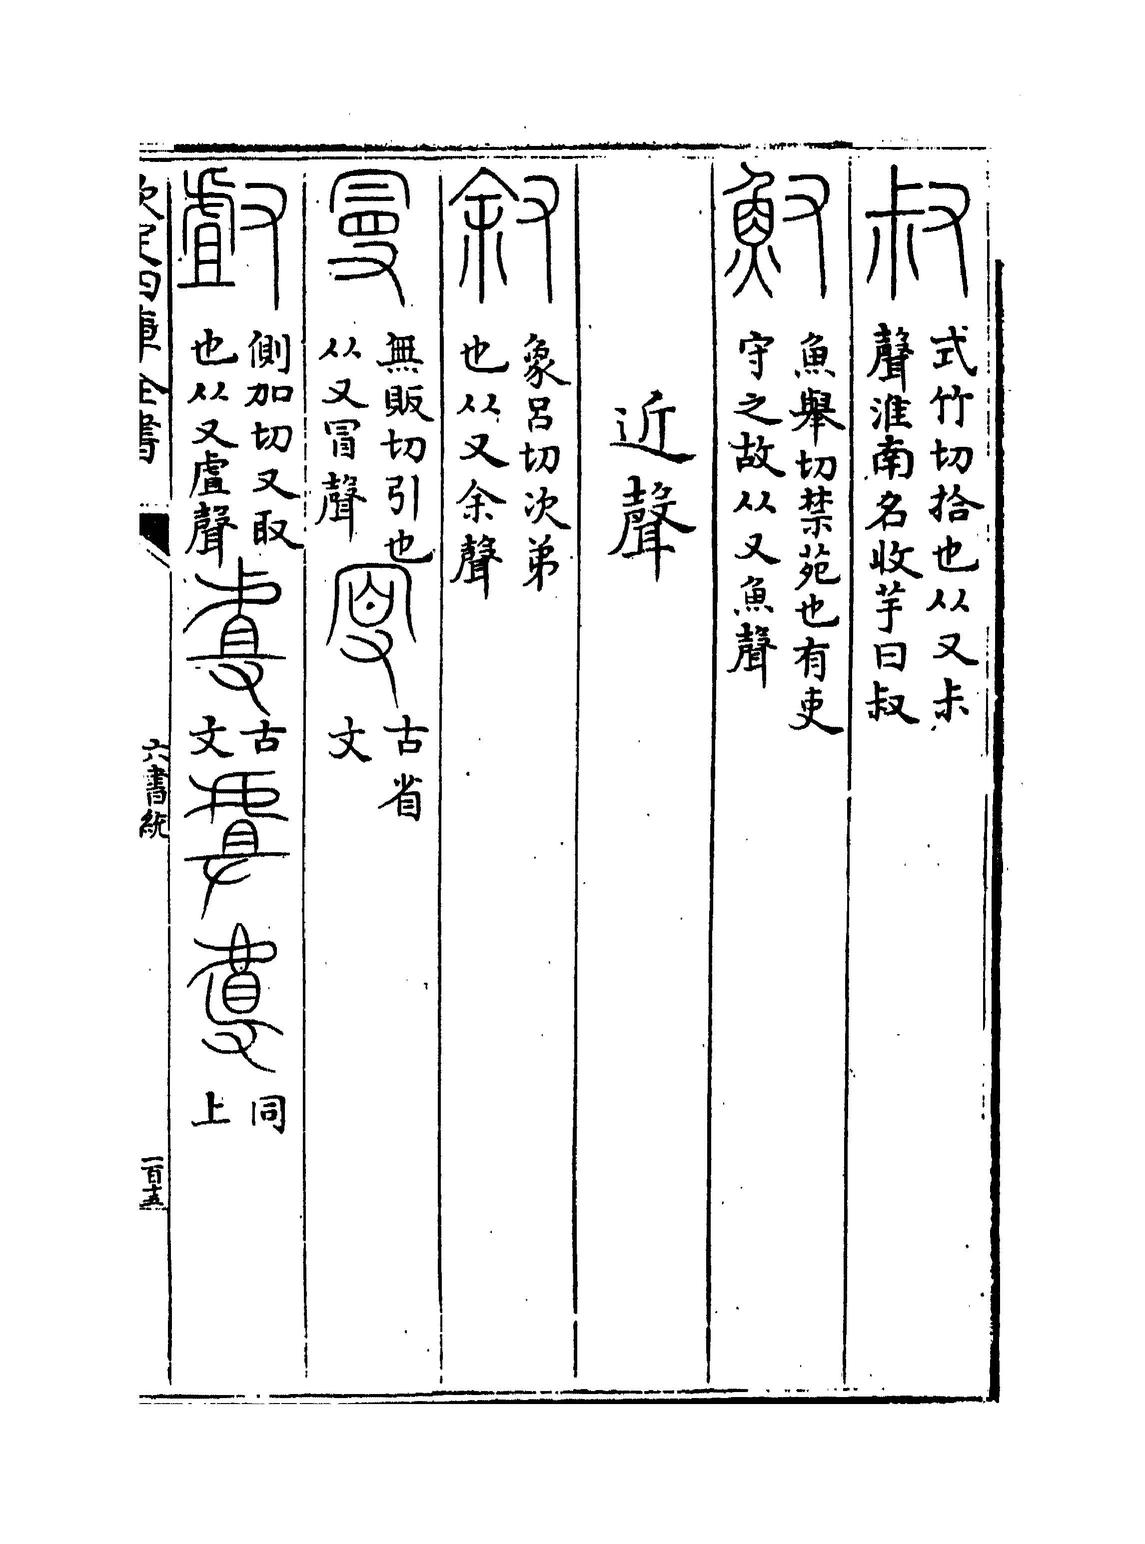 叔 式竹切拾也从又尗
聲淮南名收芋曰叔
䰻 魚舉切禁苑也有吏
守之故从又魚聲
近聲
敘 象呂切次弟
也从又余聲
曼 無販切引也
从又冒聲
古省
文
䖒 側加切又取
也从又虘聲
古
文
同
上
欽定四庫全書
六書統
一百十五